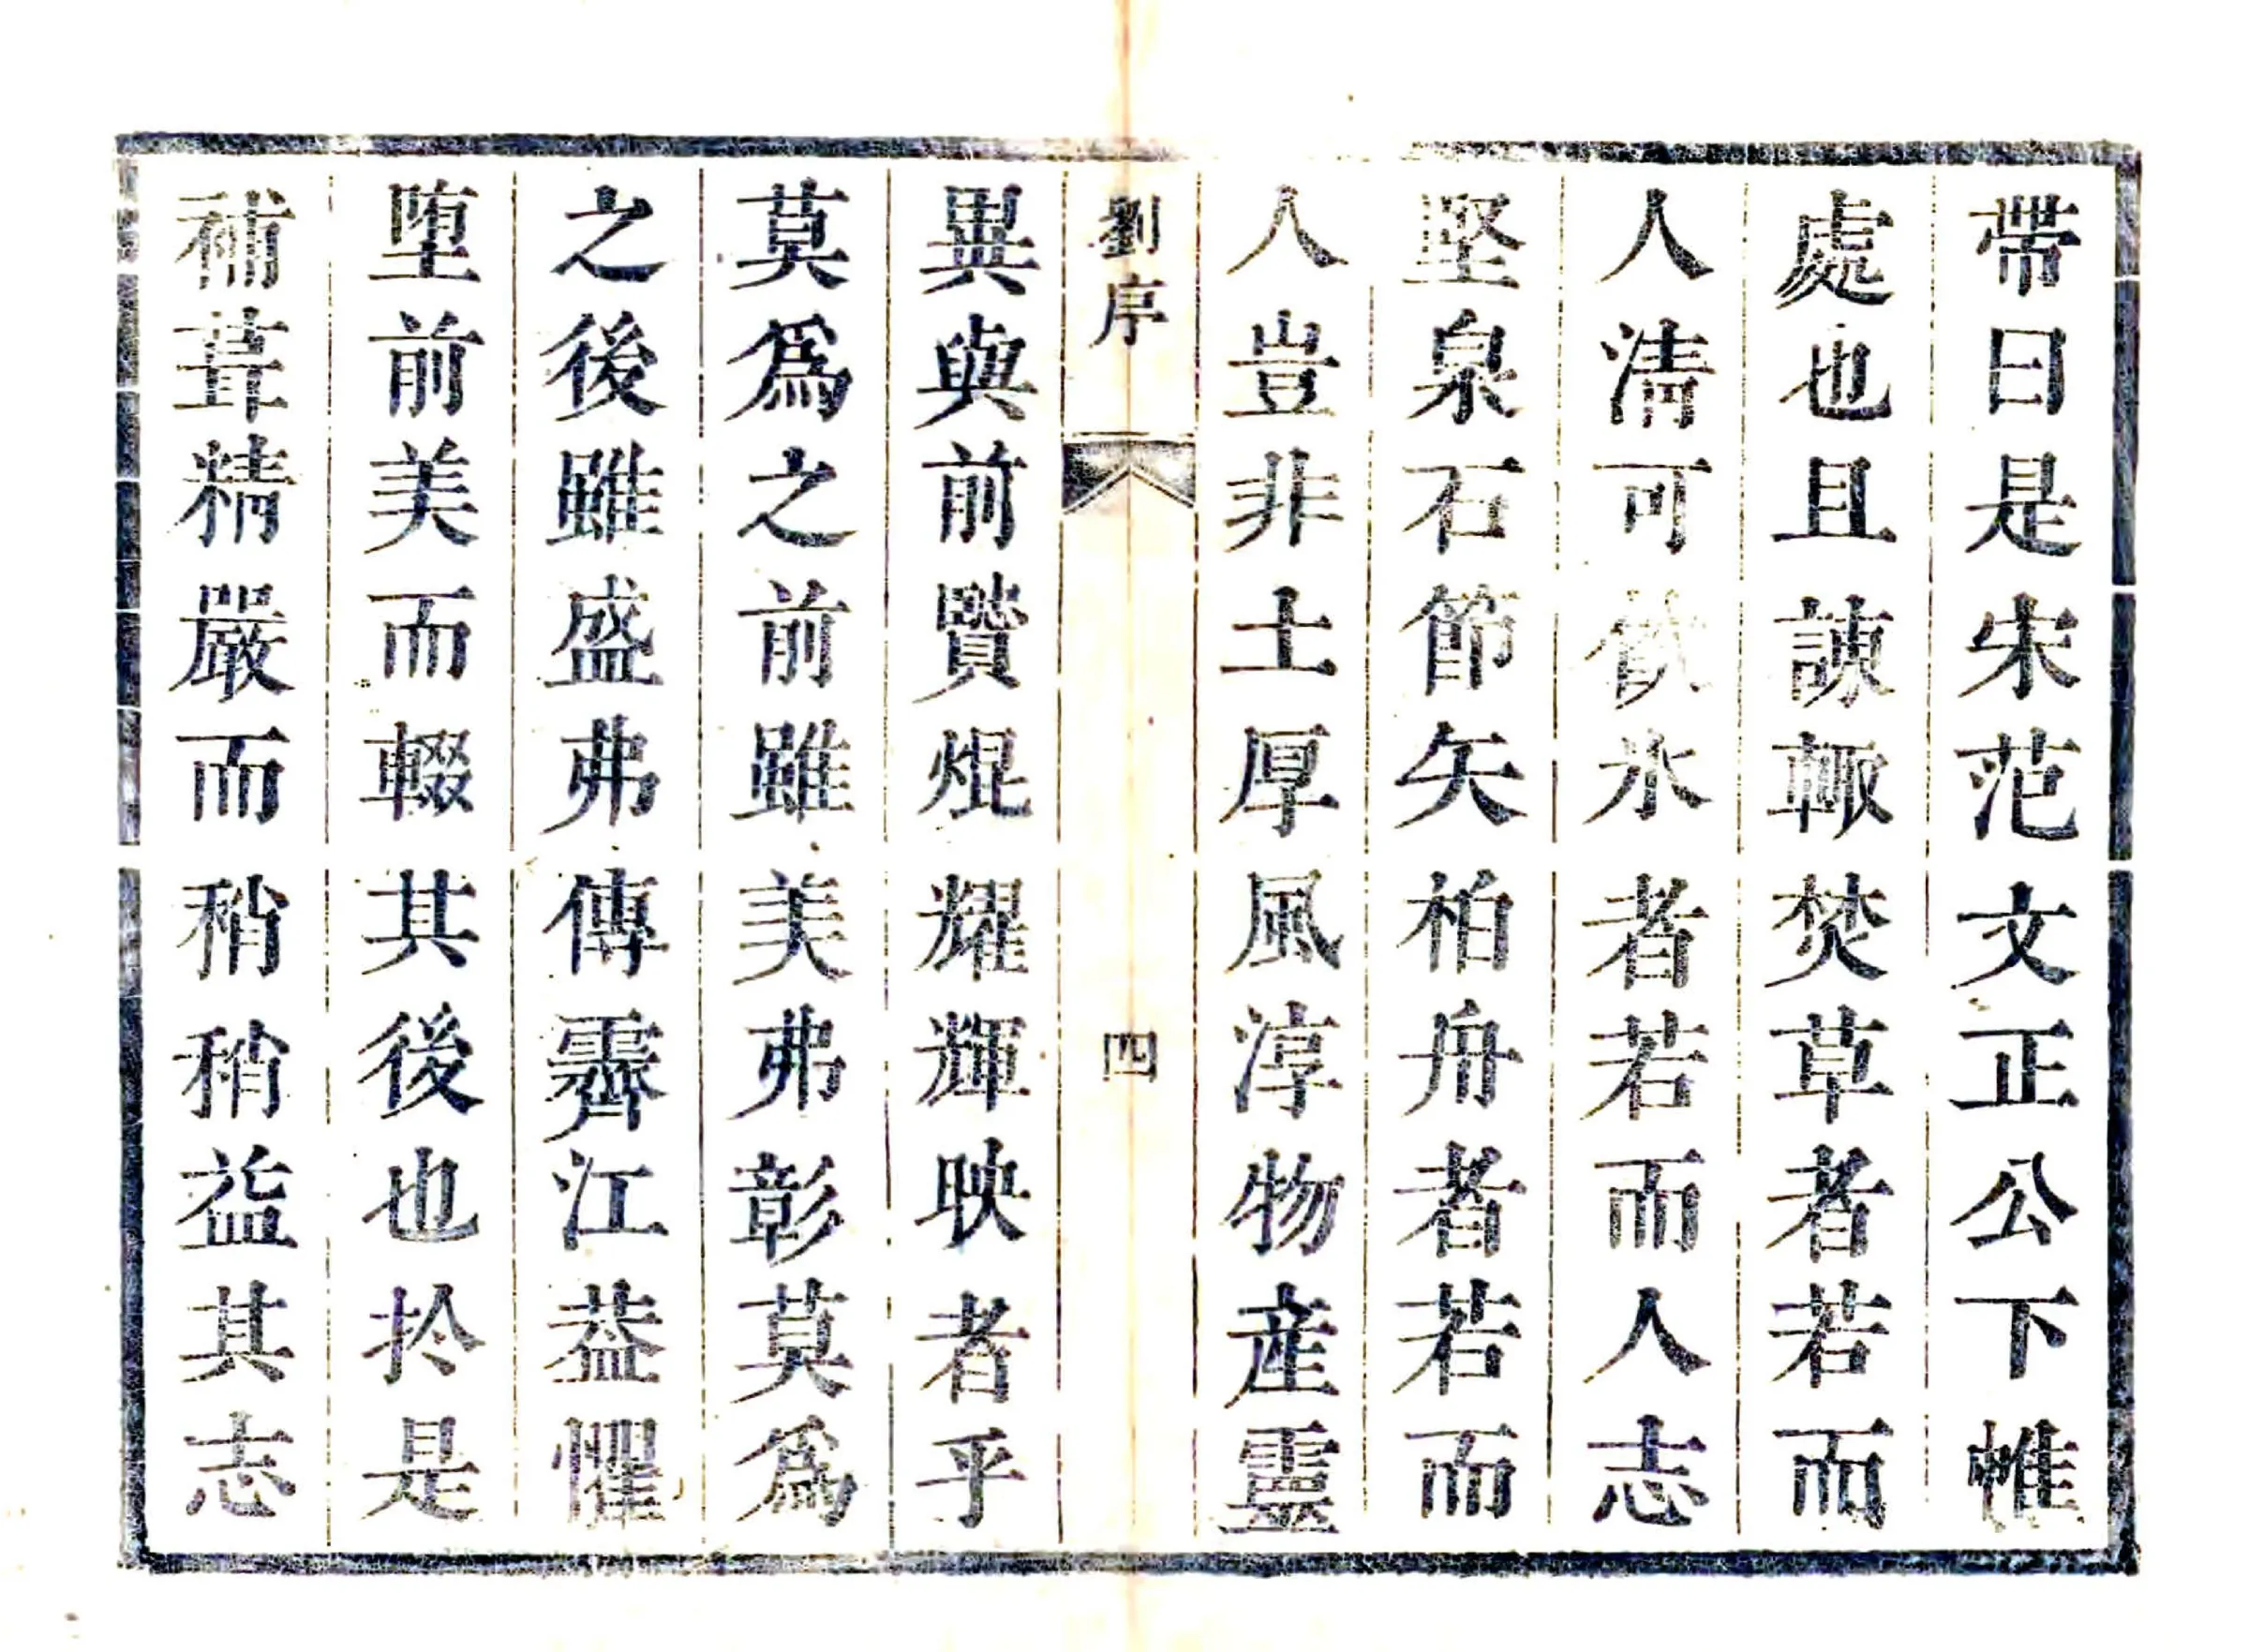 帶曰是宋范文正公下帷
處也且諫輙焚草者若而
人清可飲氷者若而人志
堅泉石節矢柏舟者若而
人豈非土厚風淳物産靈
劉序
四
異與前賢焜耀輝映者乎
莫爲之前雖美弗彰莫爲
之後雖盛弗傳霽江葢懼
堕前美而輟其後也扵是
補葺精嚴而稍稍益其志